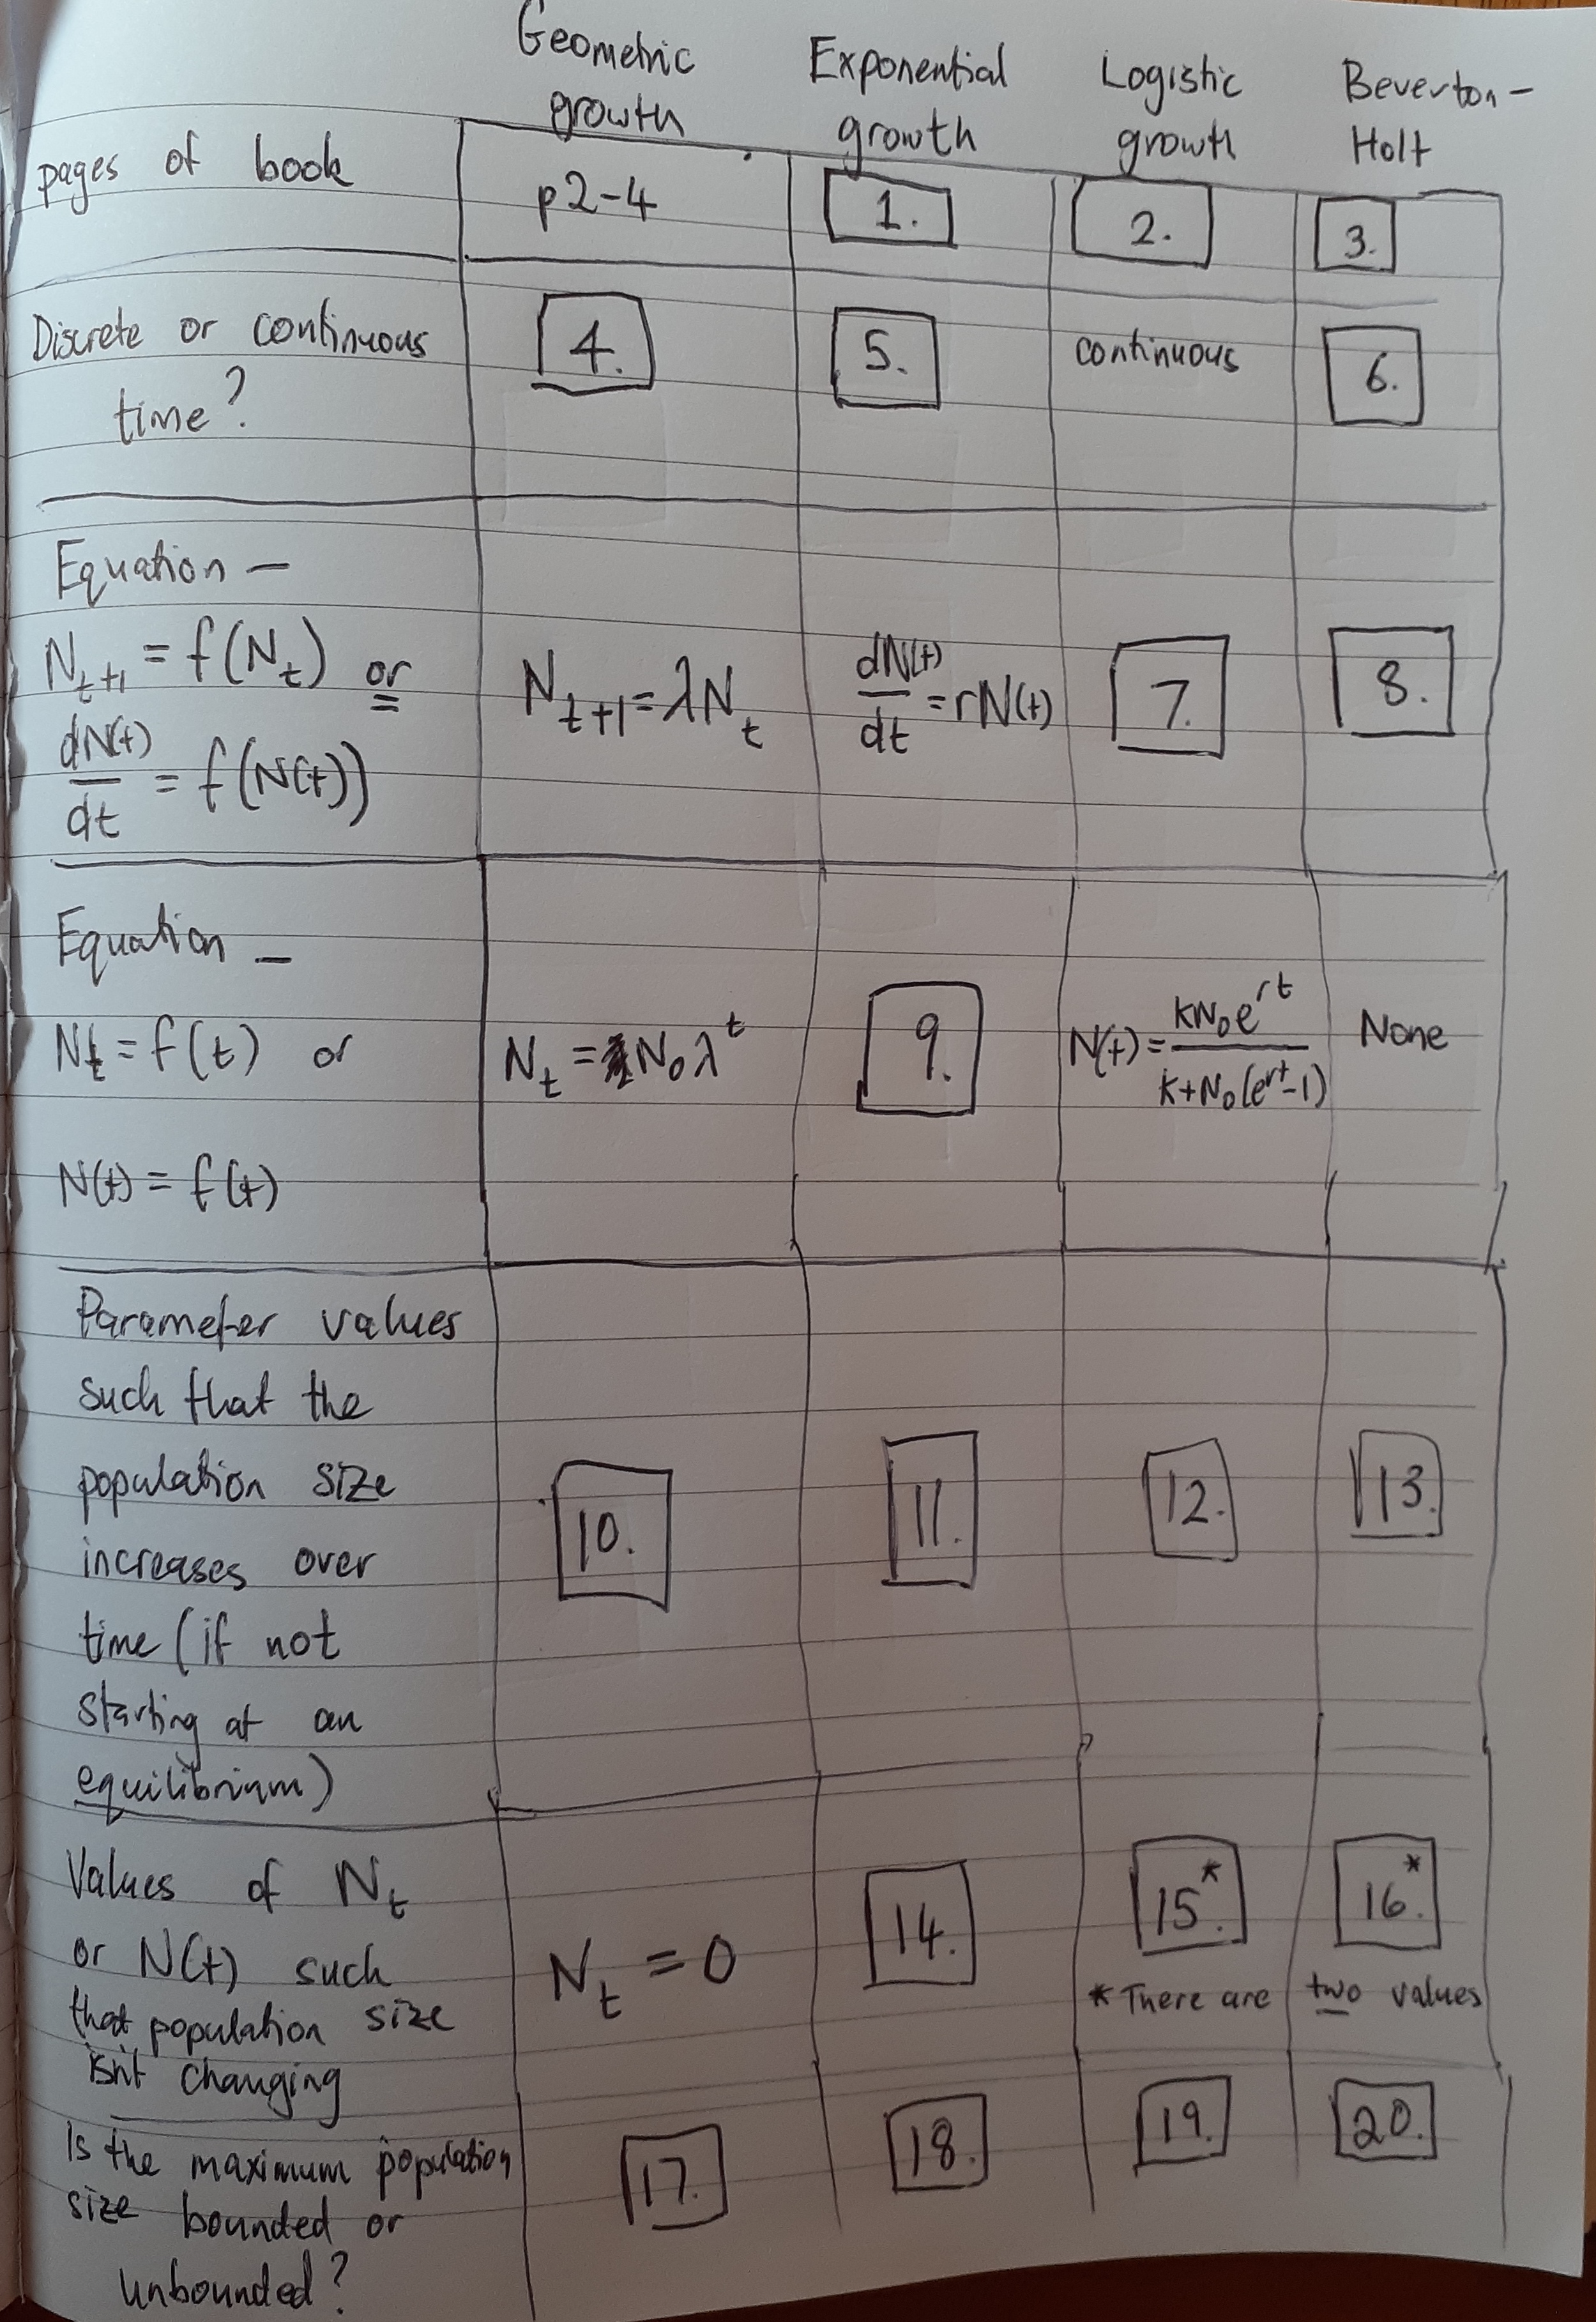 Geometric growth
Exponential growth
Logistic growth
Beverton-Holt
pages of book
p2-4
1.
2.
3.
Discrete or continuous
time?
4.
5.
continuous
6.
Equation –
N_{t+1} = f(N_t) or
dN(t)/dt = f(N(t))
N_{t+1} = λN_t
dN(t)/dt = rN(t)
7.
8.
Equation –
N_t = f(t) or
N(t) = f(t)
N_t = N_0 λ^t
9.
N(t) = KN_0e^{rt}/K+N_0(e^{rt}-1)
None
Parameter values
such that the
population size
increases over
time (if not
starting at an
equilibrium)
10.
11.
12.
13.
Values of N_t
or N(t) such
that population size
isn't changing
N_t = 0
14.
15.*
16.*
* There are two values
Is the maximum population
size bounded or
unbounded?
17.
18.
19.
20.